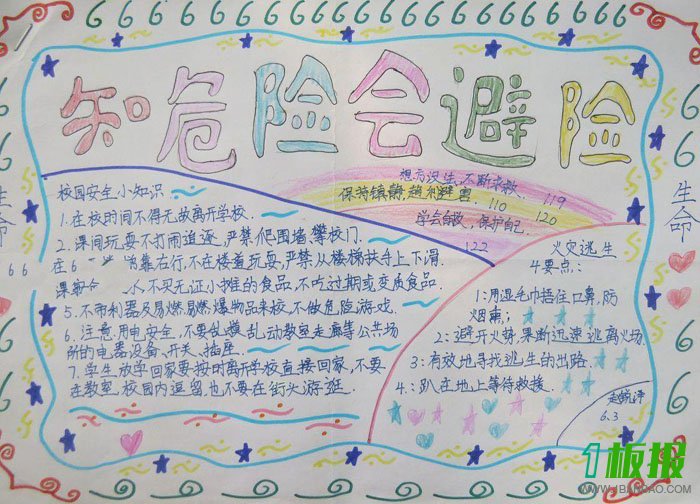 知危险会避险
生命
生命
校园安全小知识
1.在校时间不得无故离开学校.
2.课间玩耍不打闹追逐,严禁爬围墙、攀校门.
靠右行,不在楼道玩耍,严禁从楼梯扶手上下滑.
不买无证小摊的食品,不吃过期或变质食品.
5、不带利器及易燃易爆物品来校,不做危险游戏.
6、注意用电安全,不要乱摸乱动教室走廊等公共场
所的电器设备、开关、插座.
7、学生放学回家要按时离开学校直接回家,不要
在教室、校园内逗留,也不要在街头游逛.
想方设生,不断求救. 119
保持镇静,趋利避害. 110 120
学会自救,保护自己.
122
火灾逃生
4要点:
1:用湿毛巾捂住口鼻,防
烟熏;
2:避开火势,果断迅速逃离火场
3:有效地寻找逃生的出路.
4:趴在地上等待救援.
6.3
1板报
WWW.1BANBAO.COM